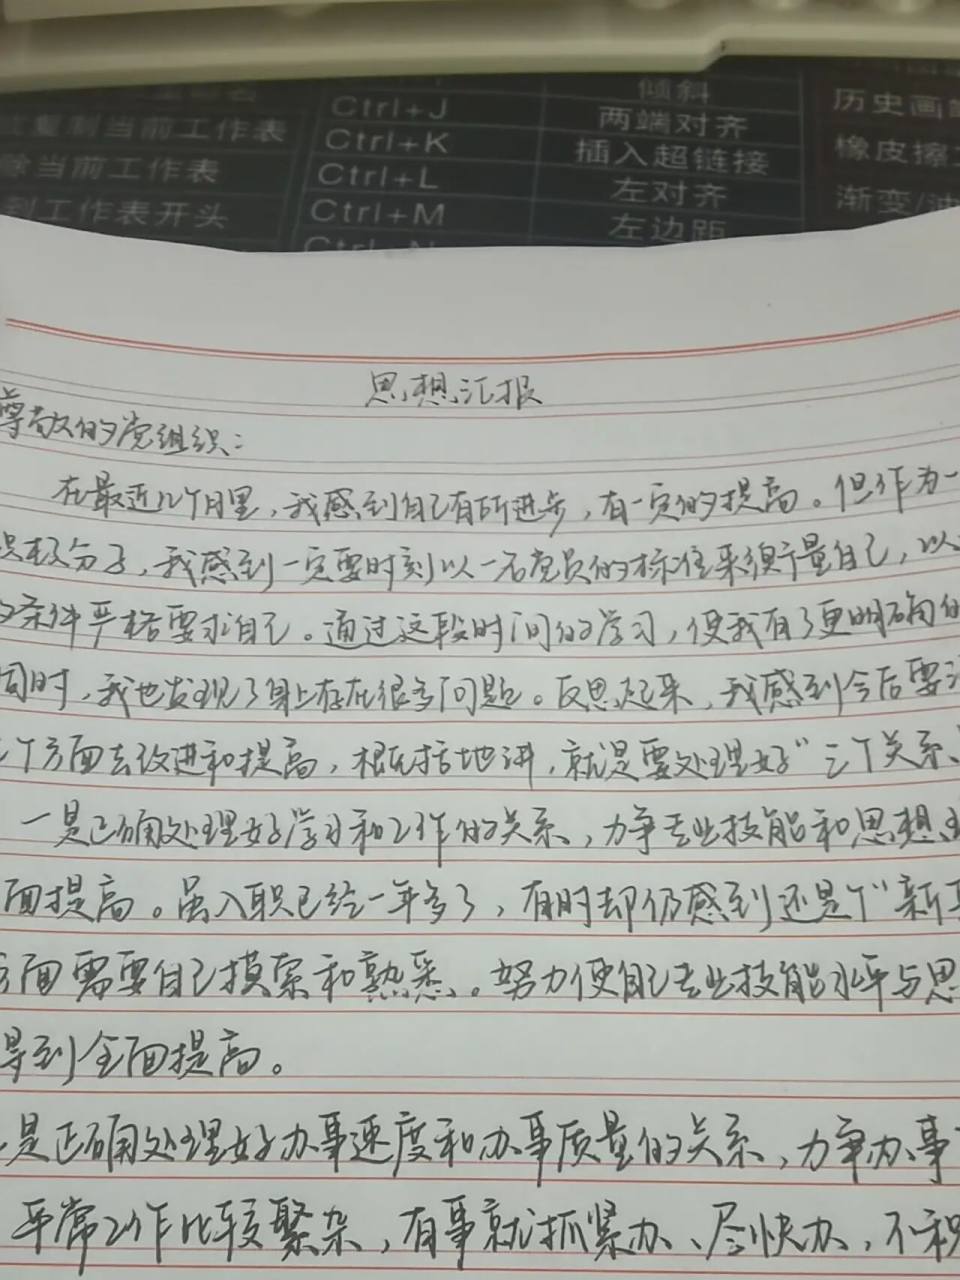 倾斜
Ctrl+J 两端对齐 历史画
复制当前工作表 Ctrl+K 插入超链接 橡皮擦
除当前工作表 Ctrl+L 左对齐 渐变/油
到工作表开头 Ctrl+M 左边距
思想汇报
尊敬的党组织：
在最近几个月里，我感到自己有所进步，有一定的提高。但作为一
积极分子，我感到一定要时刻以一名党员的标准来衡量自己，以
条件严格要求自己。通过这段时间的学习，使我有了更明确的
同时，我也发现了身上存在很多问题。反思起来，我感到今后要
个方面去改进和提高，概括地讲，就是要处理好“三个关系
一是正确处理好学习和工作的关系，力争专业技能和思想
面提高。虽入职已经一年多了，有时却仍感到还是个“新
方面需要自己摸索和熟悉。努力使自己专业技能水平与思
得到全面提高。
是正确处理好办事速度和办事质量的关系，力争办事
平常工作比较繁杂，有事就抓紧办、尽快办，不积